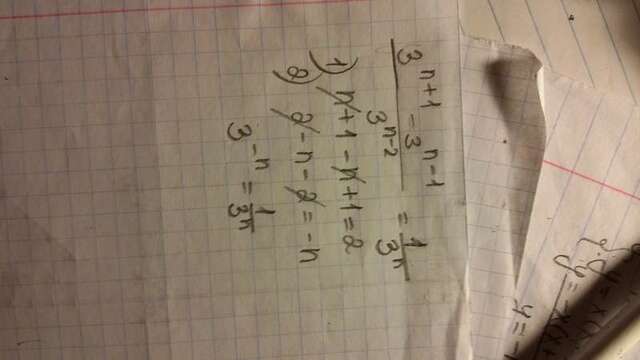 3^(n+1) - 3^(n-1) / 3^(n-2) = 1/3^n
1) n+1-n+1=2
2) 2-n-2=-n
3^(-n) = 1/3^n